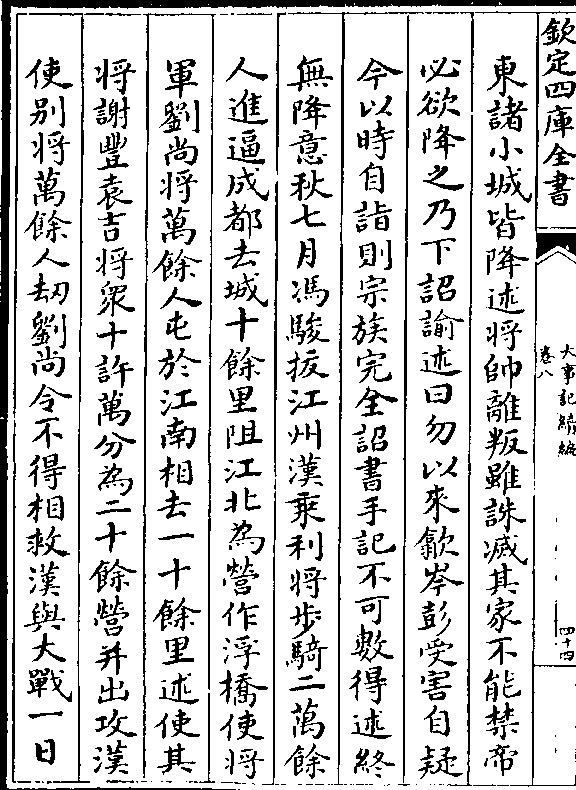 欽定四庫全書
大事記續編
卷八
四十四
東諸小城皆降述將帥離叛雖誅滅其家不能禁帝
必欲降之乃下詔諭述曰勿以來歙岑彭受害自疑
今以時自詣則宗族完全詔書手記不可數得述終
無降意秋七月馮駿拔江州漢乘利將步騎二萬餘
人進逼成都去城十餘里阻江北為營作浮橋使將
軍劉尚將萬餘人屯於江南相去一十餘里述使其
將謝豐袁吉將衆十許萬分為二十餘營并出攻漢
使别將萬餘人刧劉尚令不得相救漢與大戰一日